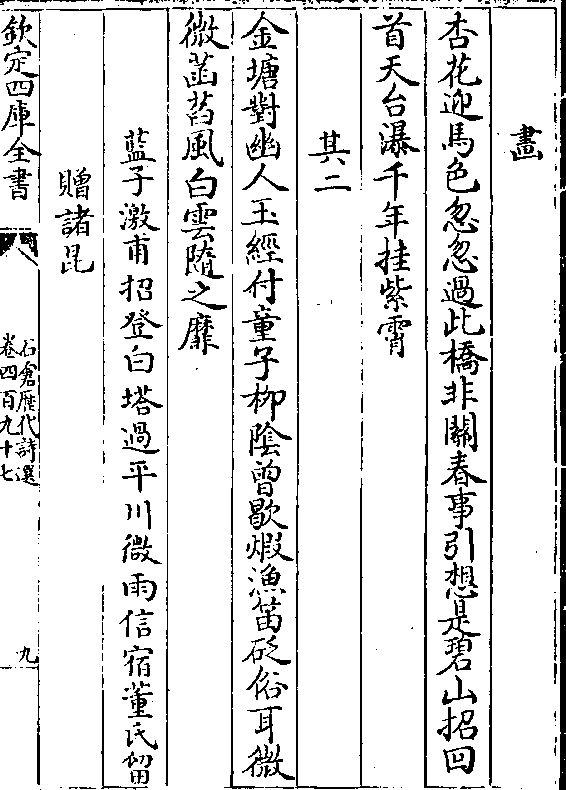 畫
杏花迎馬色忽忽過此橋非關春事引想是碧山招回
首天台瀑千年挂紫霄
其二
金塘對幽人玉經付童子柳陰曾歇煆漁笛砭俗耳微
微菡萏風白雲隨之靡
藍子激甫招登白塔過平川微雨信宿董氏留
贈諸昆
欽定四庫全書
石倉歴代詩選
卷四百九十七
九